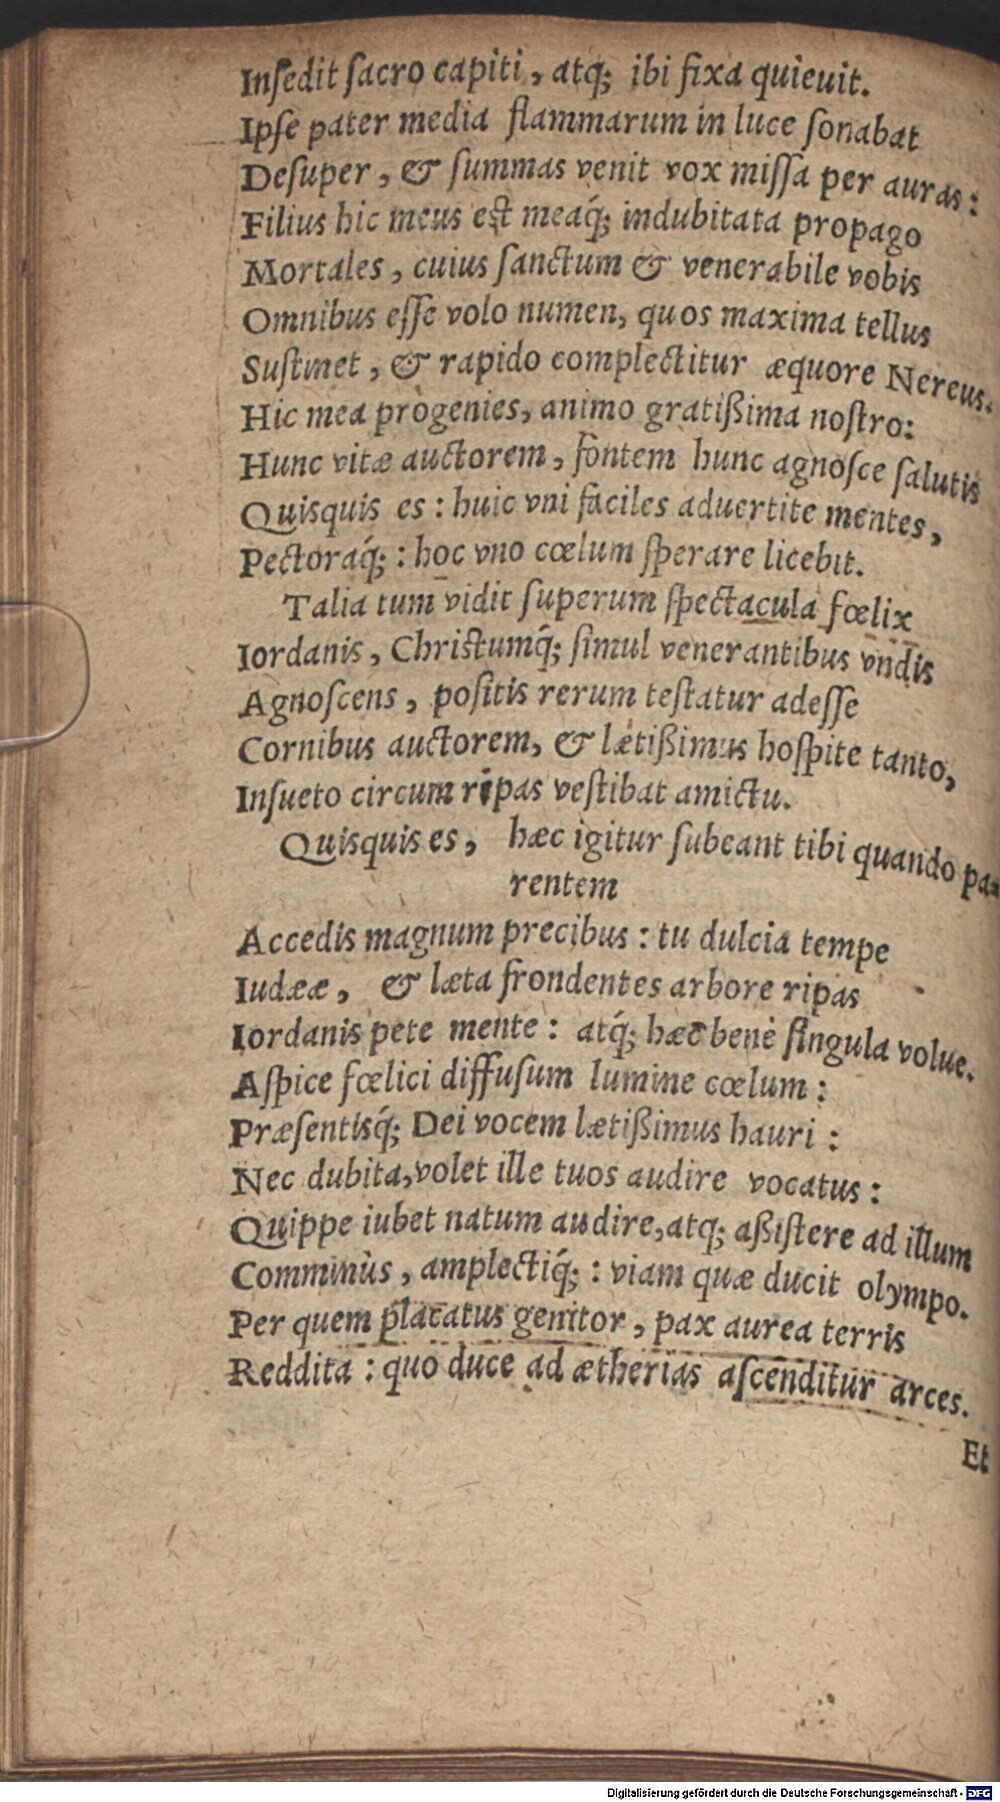 Inſedit ſacro capiti, atq; ibi fixa quieuit.
Ipſe pater media flammarum in luce ſonabat
Deſuper, & ſummas venit vox miſſa per auras:
Filius hic meus eſt meaq́; indubitata propago
Mortales, cuius ſanctum & venerabile vobis
Omnibus eſſe volo numen, quos maxima tellus
Suſtinet, & rapido complectitur æquore Nereus.
Hic mea progenies, animo gratißima noſtro:
Hunc vitæ auctorem, fontem hunc agnoſce ſalutis
Quisquis es: huic vni faciles aduertite mentes,
Pectoraq́;: hoc vno cœlum ſperare licebit.
Talia tum vidit ſuperum ſpectacula fœlix
Iordanis, Chriſtumq́; ſimul venerantibus vndis
Agnoſcens, poſitis rerum teſtatur adeſſe
Cornibus auctorem, & lætißimus hoſpite tanto,
Inſueto circum ripas veſtibat amictu.
Quisquis es, hæc igitur ſubeant tibi quando pa-
rentem
Accedis magnum precibus: tu dulcia tempe
Iudææ, & læta frondentes arbore ripas
Iordanis pete mente: atq́; hæc bene ſingula volue.
Aſpice fœlici diffuſum lumine cœlum:
Præſentisq́; Dei vocem lætißimus hauri:
Nec dubita, volet ille tuos audire vocatus:
Quippe iubet natum audire, atq; aßiſtere ad illum
Comminùs, amplectiq́;: viam quæ ducit olympo.
Per quem placatus genitor, pax aurea terris
Reddita: quo duce ad ætherias aſcenditur arces.
Et
Digitalisierung gefördert durch die Deutsche Forschungsgemeinschaft - DFG